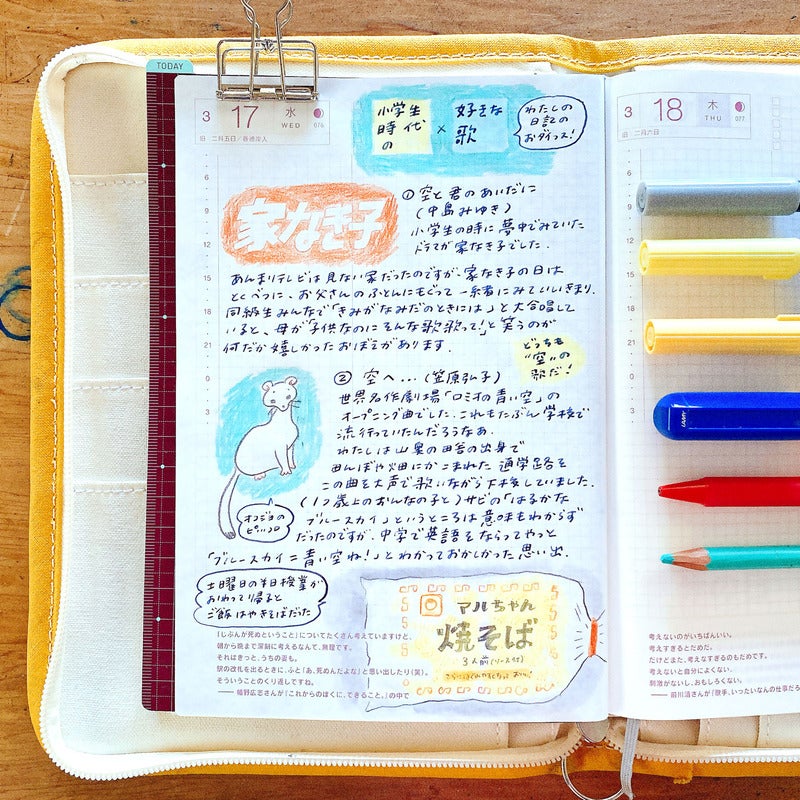 TODAY
3 17 水
WED 076
旧 二月五日／春彼岸入
小学生
時代
の
×
好きな
歌
わたしの
日記の
おダイス!
家なき子
① 空と君のあいだに
(中島みゆき)
小学生の時に夢中でみていた
ドラマが家なき子でした.
あんまりテレビは見ない家だったのですが、家なき子の日は
とくべつに、お父さんのふとんにもぐって一緒にみていいきまり.
同級生みんなで「きみがなみだのときには」と大合唱して
いると、母が「子供なのにそんな歌歌って!」と笑うのが
何だか嬉しかったおぼえがあります.
どっちも
"空"の
歌だ!
② 空へ…(笠原弘子)
世界名作劇場「ロミオの青い空」の
オープニング曲でした. これもたぶん学校で
流行っていたんだろうなあ.
わたしは山奥の田舎の出身で
田んぼや畑にかこまれた通学路を
この曲を大声で歌いながら下校していました.
(1つ歳上のおんなの子と)サビの「はるかな
ブルースカイ」というところは意味もわからず
だったのですが、中学で英語をならってやっと
「ブルースカイ=青い空ね!」とわかっておかしかった思い出.
オコジョの
ピッコロ
土曜日の半日授業が
おわって帰ると
ご飯はやきそばだった
マルちゃん
焼そば
3人前(ソース付)
「じぶんが死ぬということ」についてたくさん考えていますけど、
朝から晩まで深刻に考えるなんて、無理です。
それはきっと、うちの妻も。
駅の改札を出るときに、ふと「あ、死ぬんだよな」と思い出したり(笑)。
そういうことのくり返しですね。
── 幡野広志さんが『これからのぼくに、できること。』の中で
6
9
12
15
18
21
0
3
3 18 木
THU 077
旧 二月六日
6
9
12
15
18
21
0
3
LAMY
考えないのがいちばんいい。
考えすぎるとだめだ。
だけどまた、考えすぎるのもだめです。
考えないと自分によくない。
刺激がないし、おもしろくない。
── 前川清さんが『歌手、いったいなんの仕事だろ